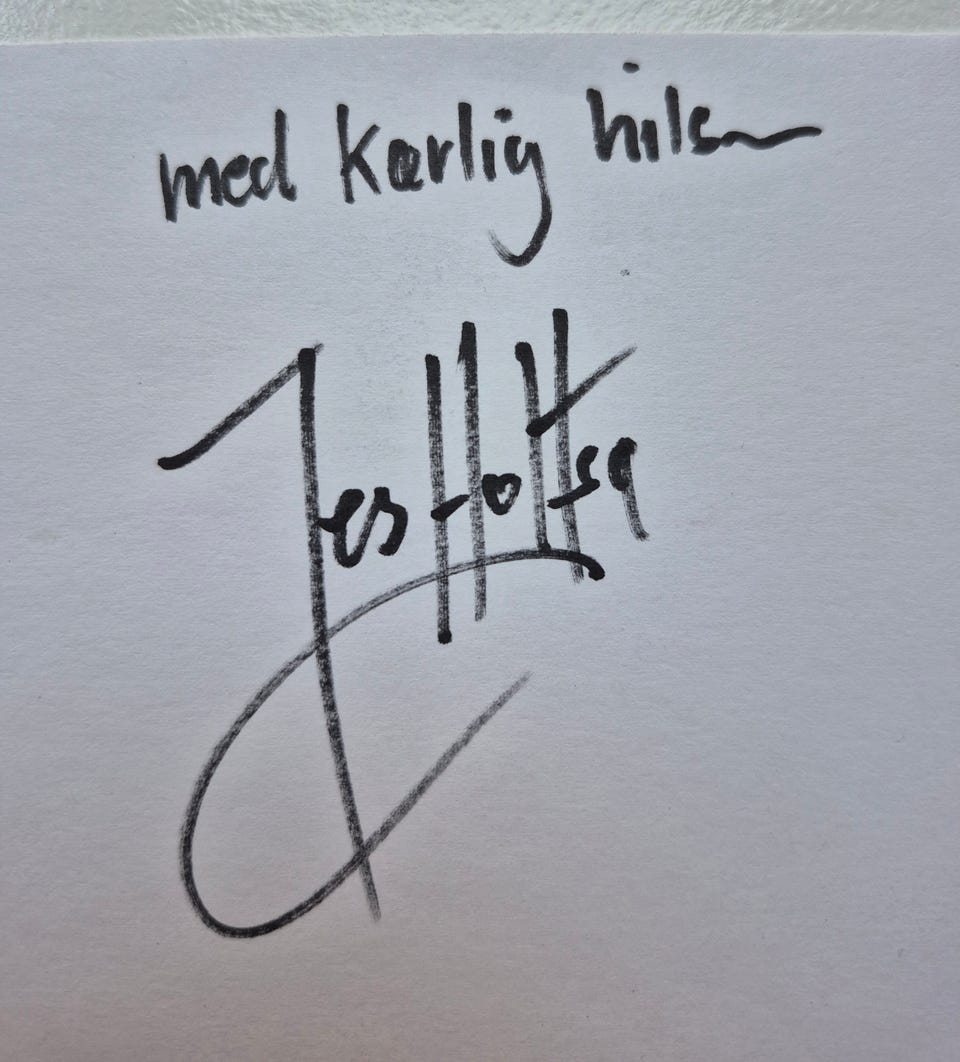 med kærlig hilsen
Jes Holtsø